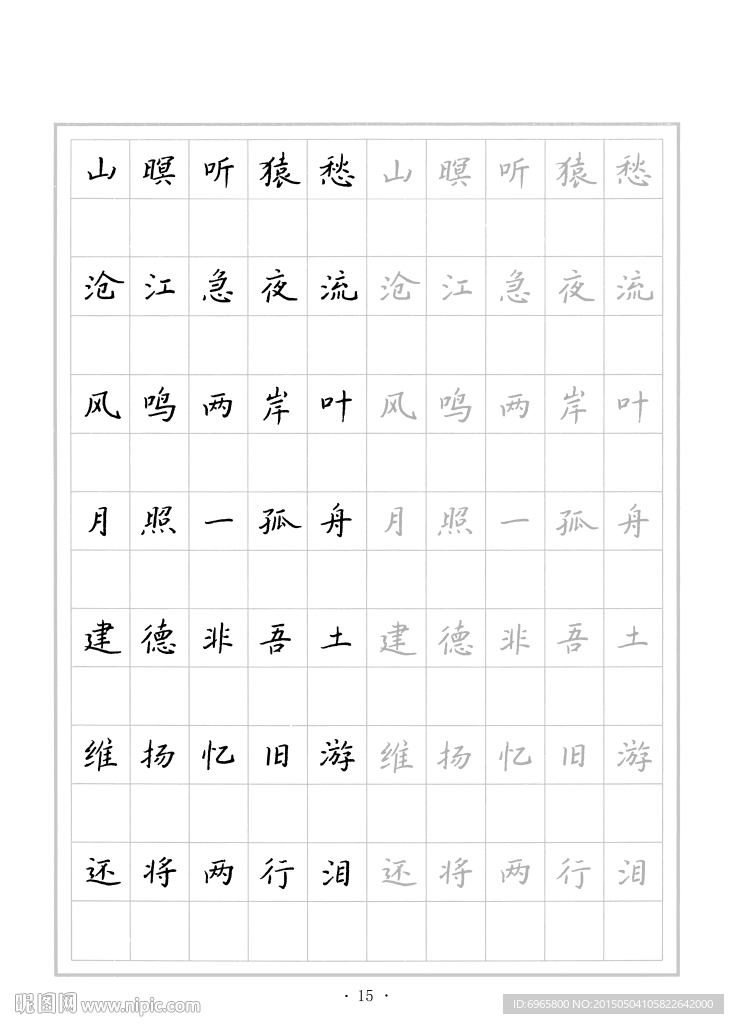 山暝听猿愁山暝听猿愁
沧江急夜流沧江急夜流
风鸣两岸叶风鸣两岸叶
月照一孤舟月照一孤舟
建德非吾土建德非吾土
维扬忆旧游维扬忆旧游
还将两行泪还将两行泪
· 15 ·
昵图网 www.nipic.com
ID:6965800 NO:20150504105822642000